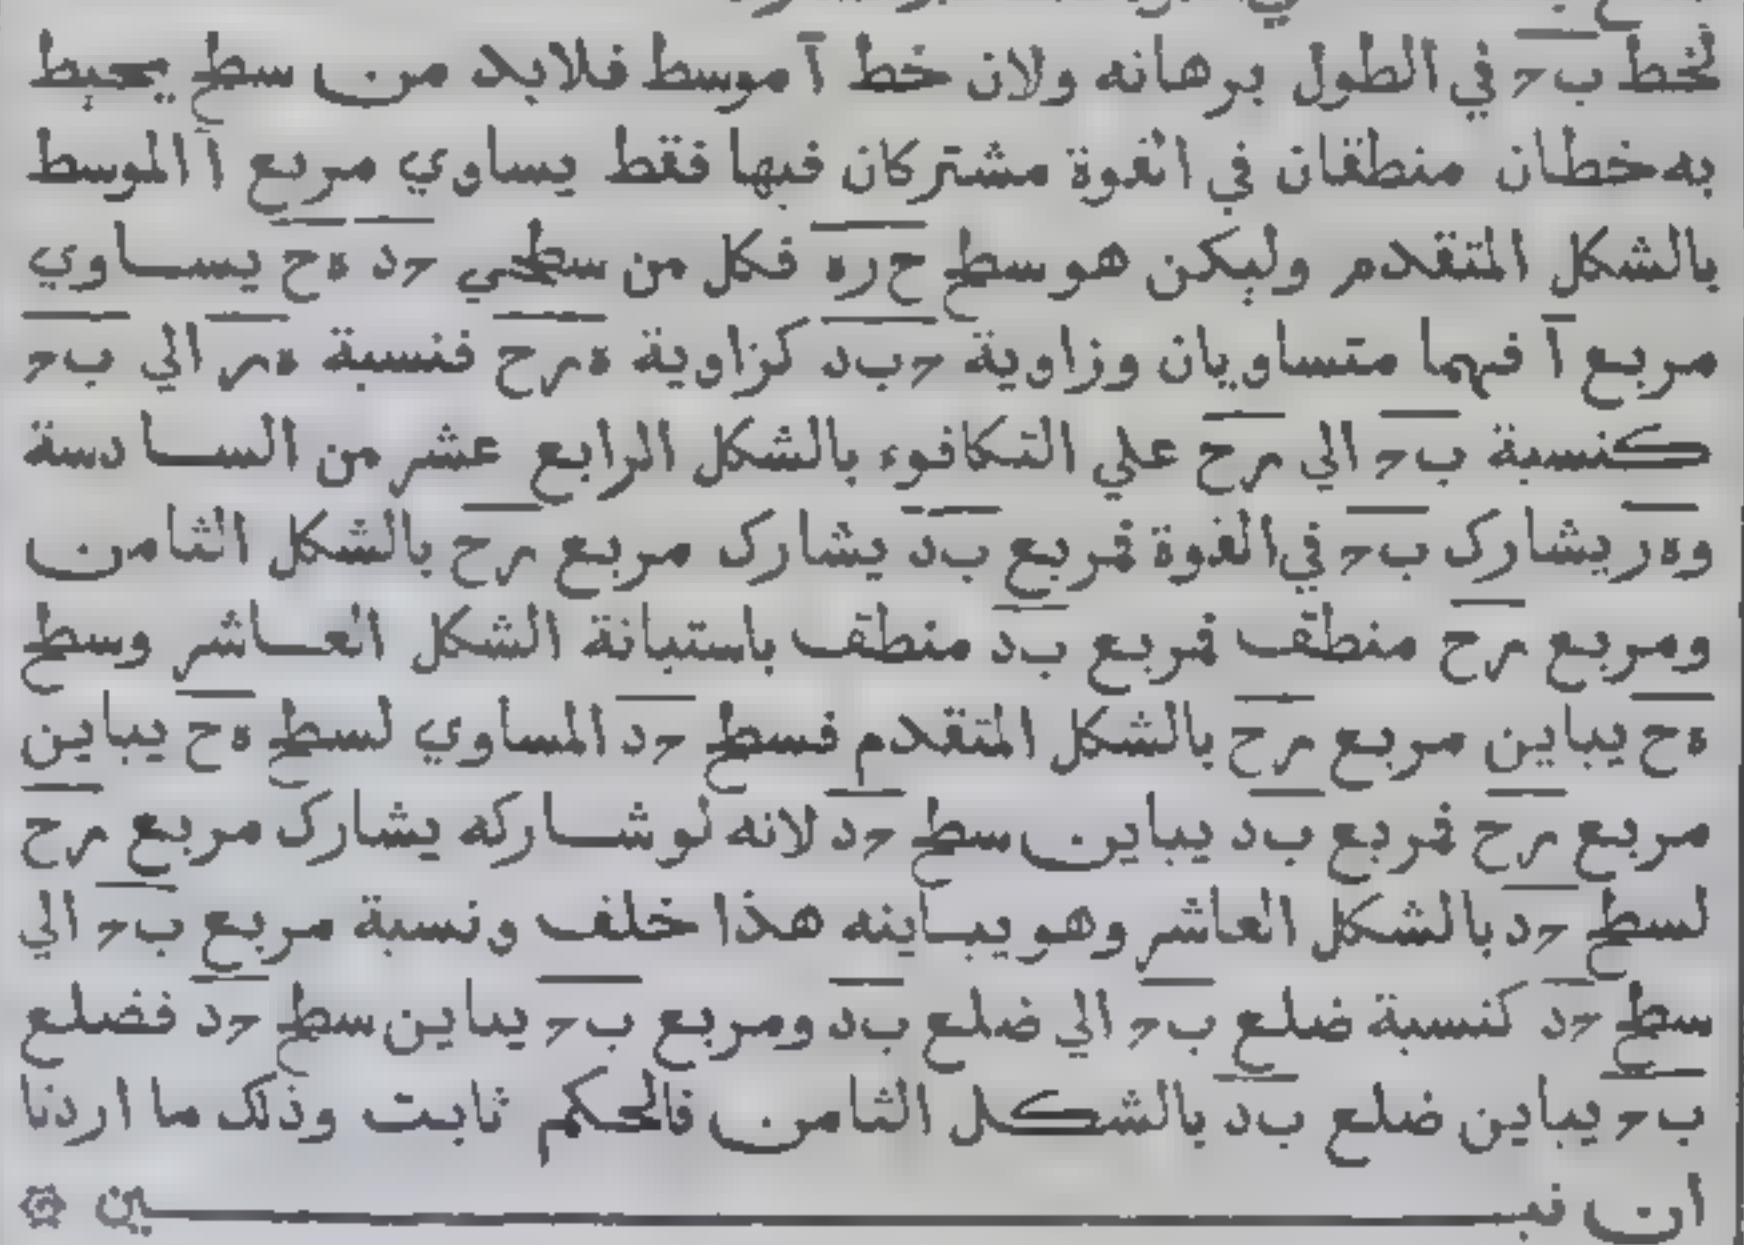 لخط ب ح في الطول برهانه ولان خط آ موسط فلابد من سطح يحيط
به خطان منطقان في القوة مشتركان فيها فقط يساوي مربع آ الموسط
بالشكل المتقدم وليكن هو سطح ح ر ه فكل من سطحي ح د ه ح يساوي
مربع آ فهما متساويان وزاوية ح ب د كزاوية ه ر ح فنسبة ه ر الي ب ح
كنسبة ب ح الي ر ح علي التكافوء بالشكل الرابع عشر من السادسة
و ه ر يشارك ب ح في القوة فمربع ب د يشارك مربع ر ح بالشكل الثامن
ومربع ر ح منطق فمربع ب د منطق باستبانة الشكل العاشر وسطح
ه ح يباين مربع ر ح بالشكل المتقدم فسطح ح د المساوي لسطح ه ح يباين
مربع ر ح فمربع ب د يباين سطح ح د لانه لو شاركه يشارك مربع ر ح
لسطح ح د بالشكل العاشر وهو يباينه هذا خلف ونسبة مربع ب ح الي
سطح ح د كنسبة ضلع ب ح الي ضلع ب د ومربع ب ح يباين سطح ح د فضلع
ب ح يباين ضلع ب د بالشكل الثامن فالحكم ثابت وذلك ما اردنا
ان نبين